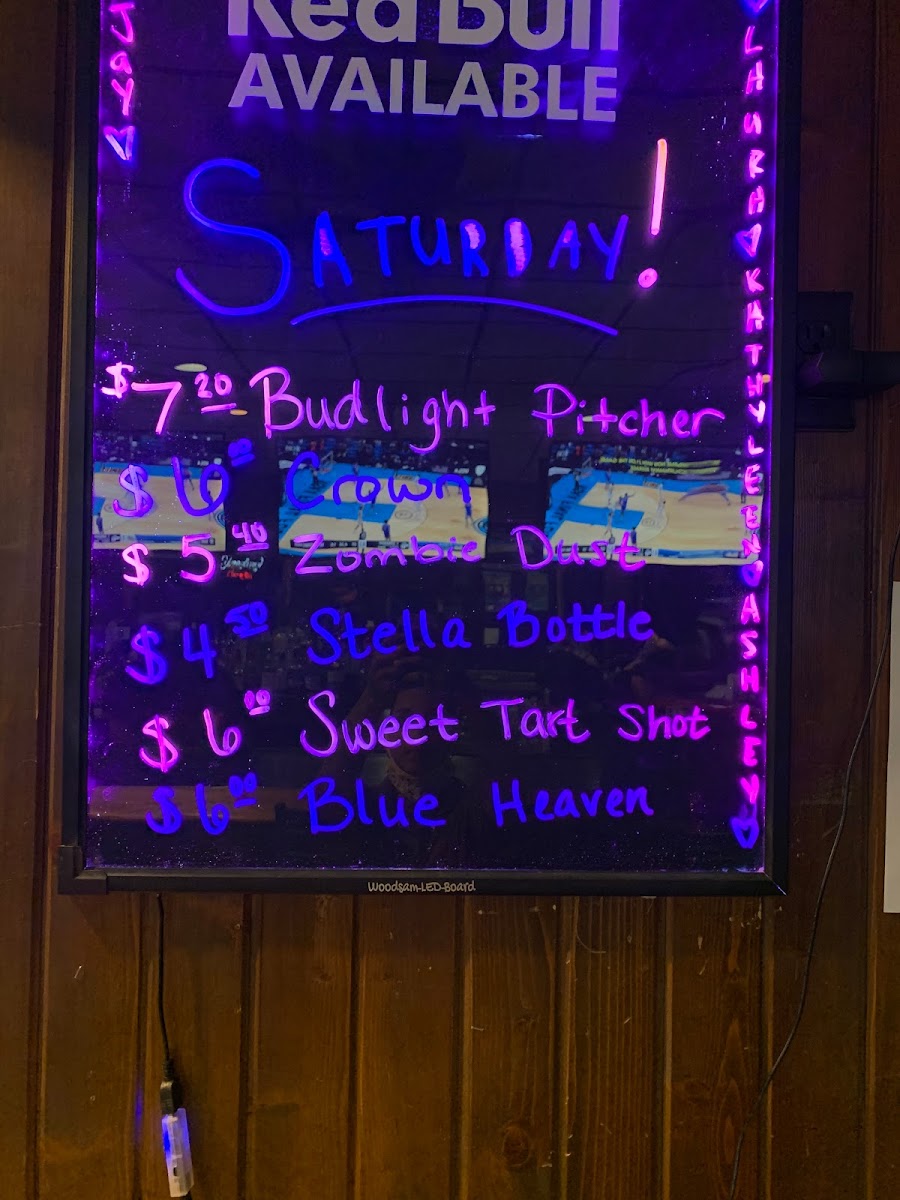 Red Bull
AVAILABLE
Jay
SATURDAY!
$7.20 Budlight Pitcher
$6.00 Crown
$5.40 Zombie Dust
$4.50 Stella Bottle
$6.00 Sweet Tart Shot
$6.00 Blue Heaven
LAURA KATHYLEEN ASHLEY
Woodsam-LED-Board